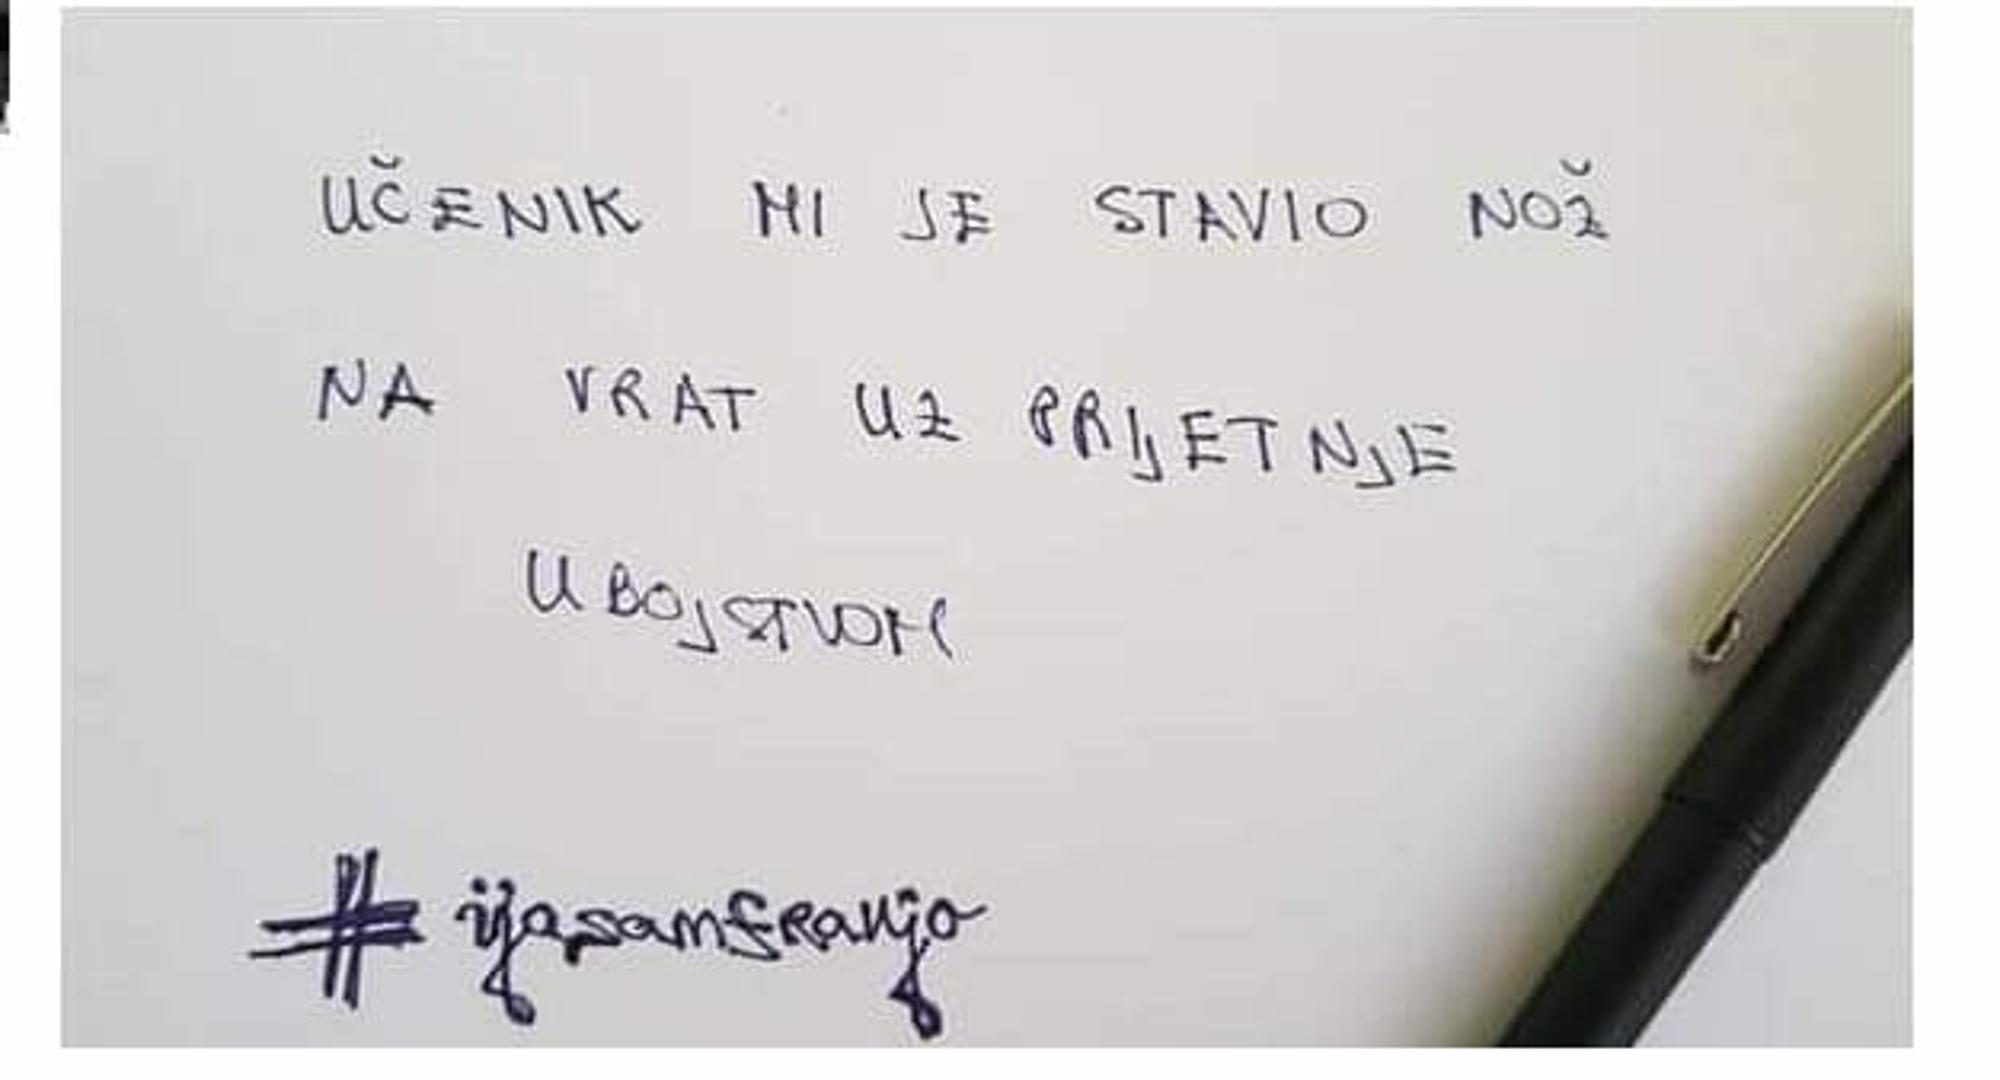 UČENIK MI JE STAVIO NOŽ
NA VRAT UZ PRIJETNJE
UBOJSTVOM
#ijasamfranjo